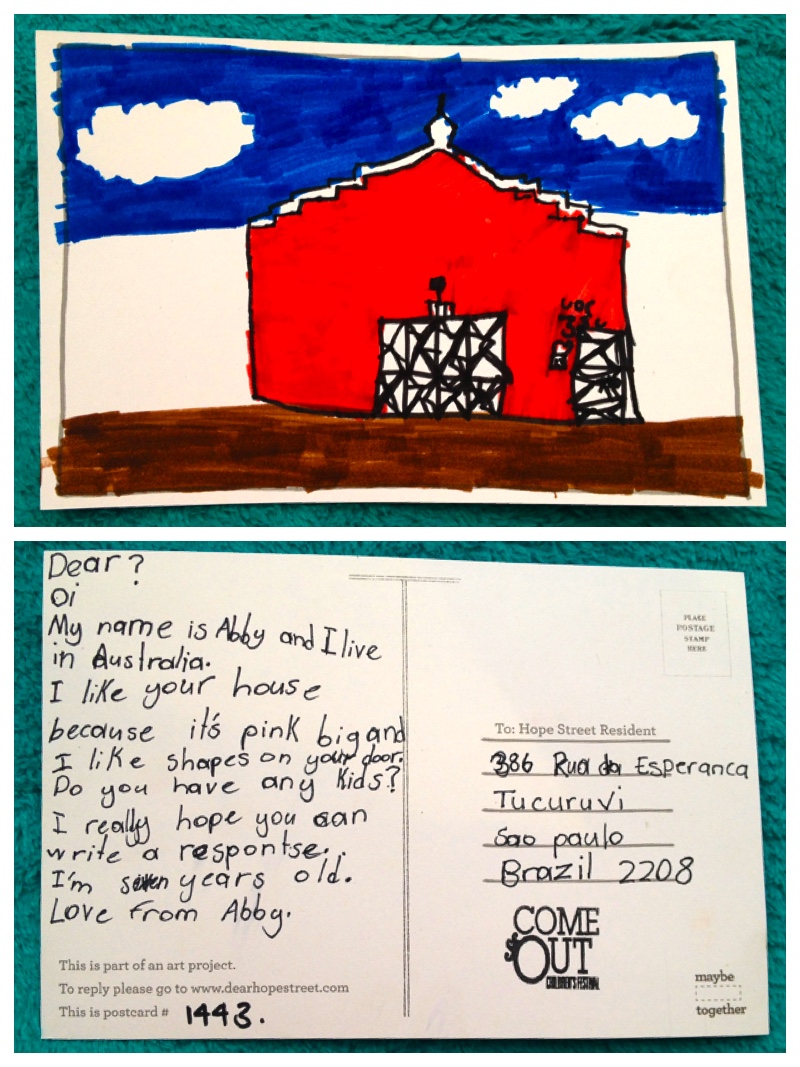 Dear ?
Oi
My name is Abby and I live
in Australia.
I like your house
because it's pink big and
I like shapes on your door.
Do you have any kids?
I really hope you can
write a respontse.
I'm seven years old.
Love from Abby.
This is part of an art project.
To reply please go to www.dearhopestreet.com
This is postcard # 1443.
PLACE
POSTAGE
STAMP
HERE
To: Hope Street Resident
386 Rua da Esperanca
Tucuruvi
Sao paulo
Brazil 2208
COME
OUT
CHILDREN'S FESTIVAL
maybe
together